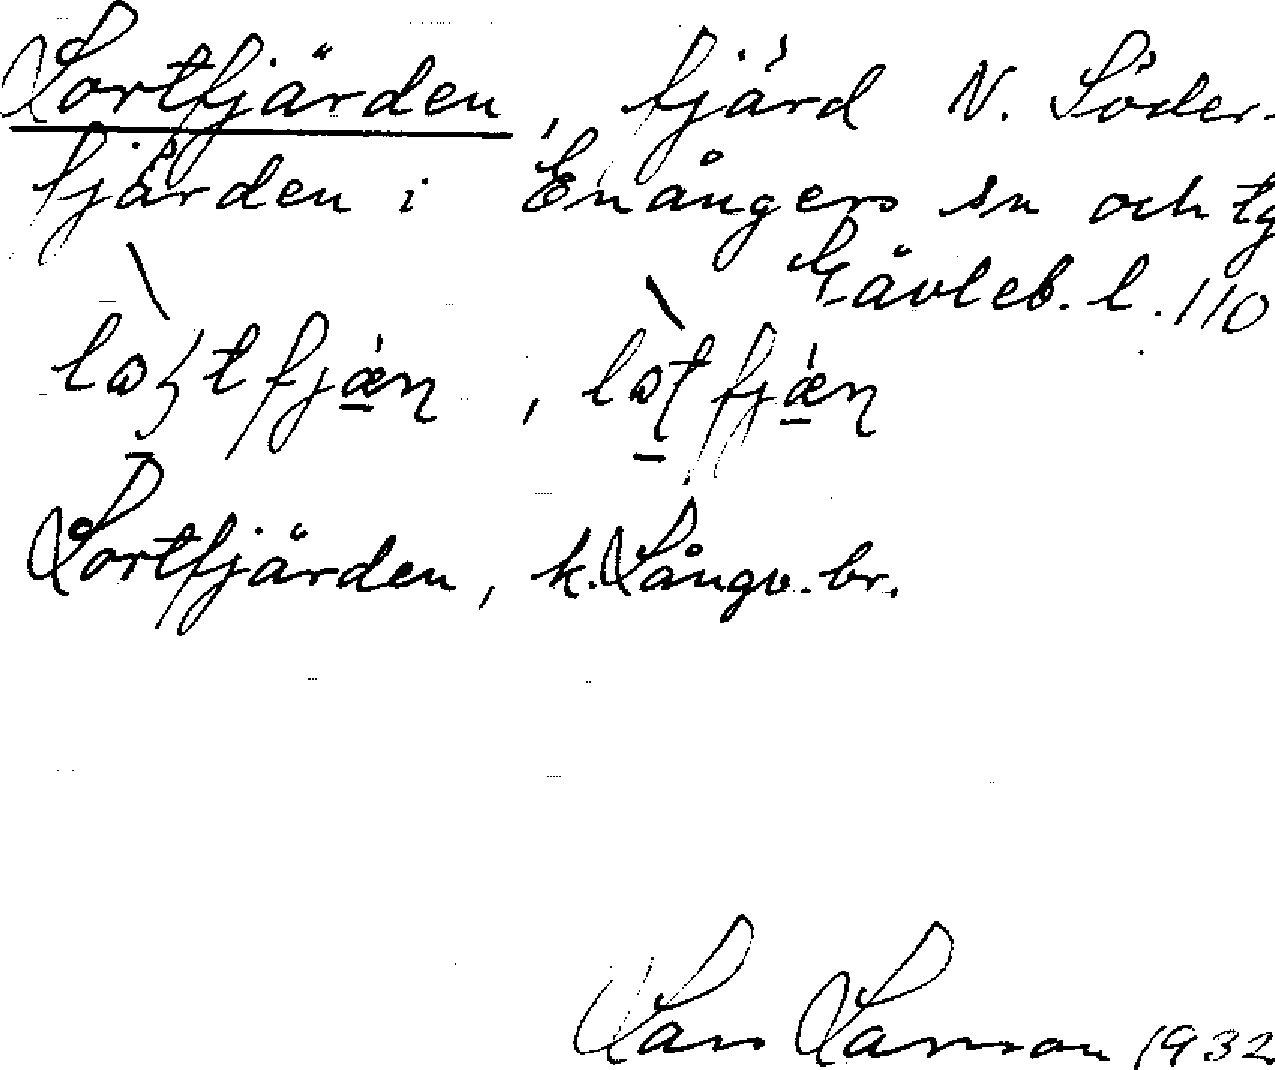 Lortfjärden, fjärd N. Söder-
fjärden i Enångers sn och tg
Gävleb. l. 110
Lortfjärden, k. Långv. br.
Lars Larsson 1932